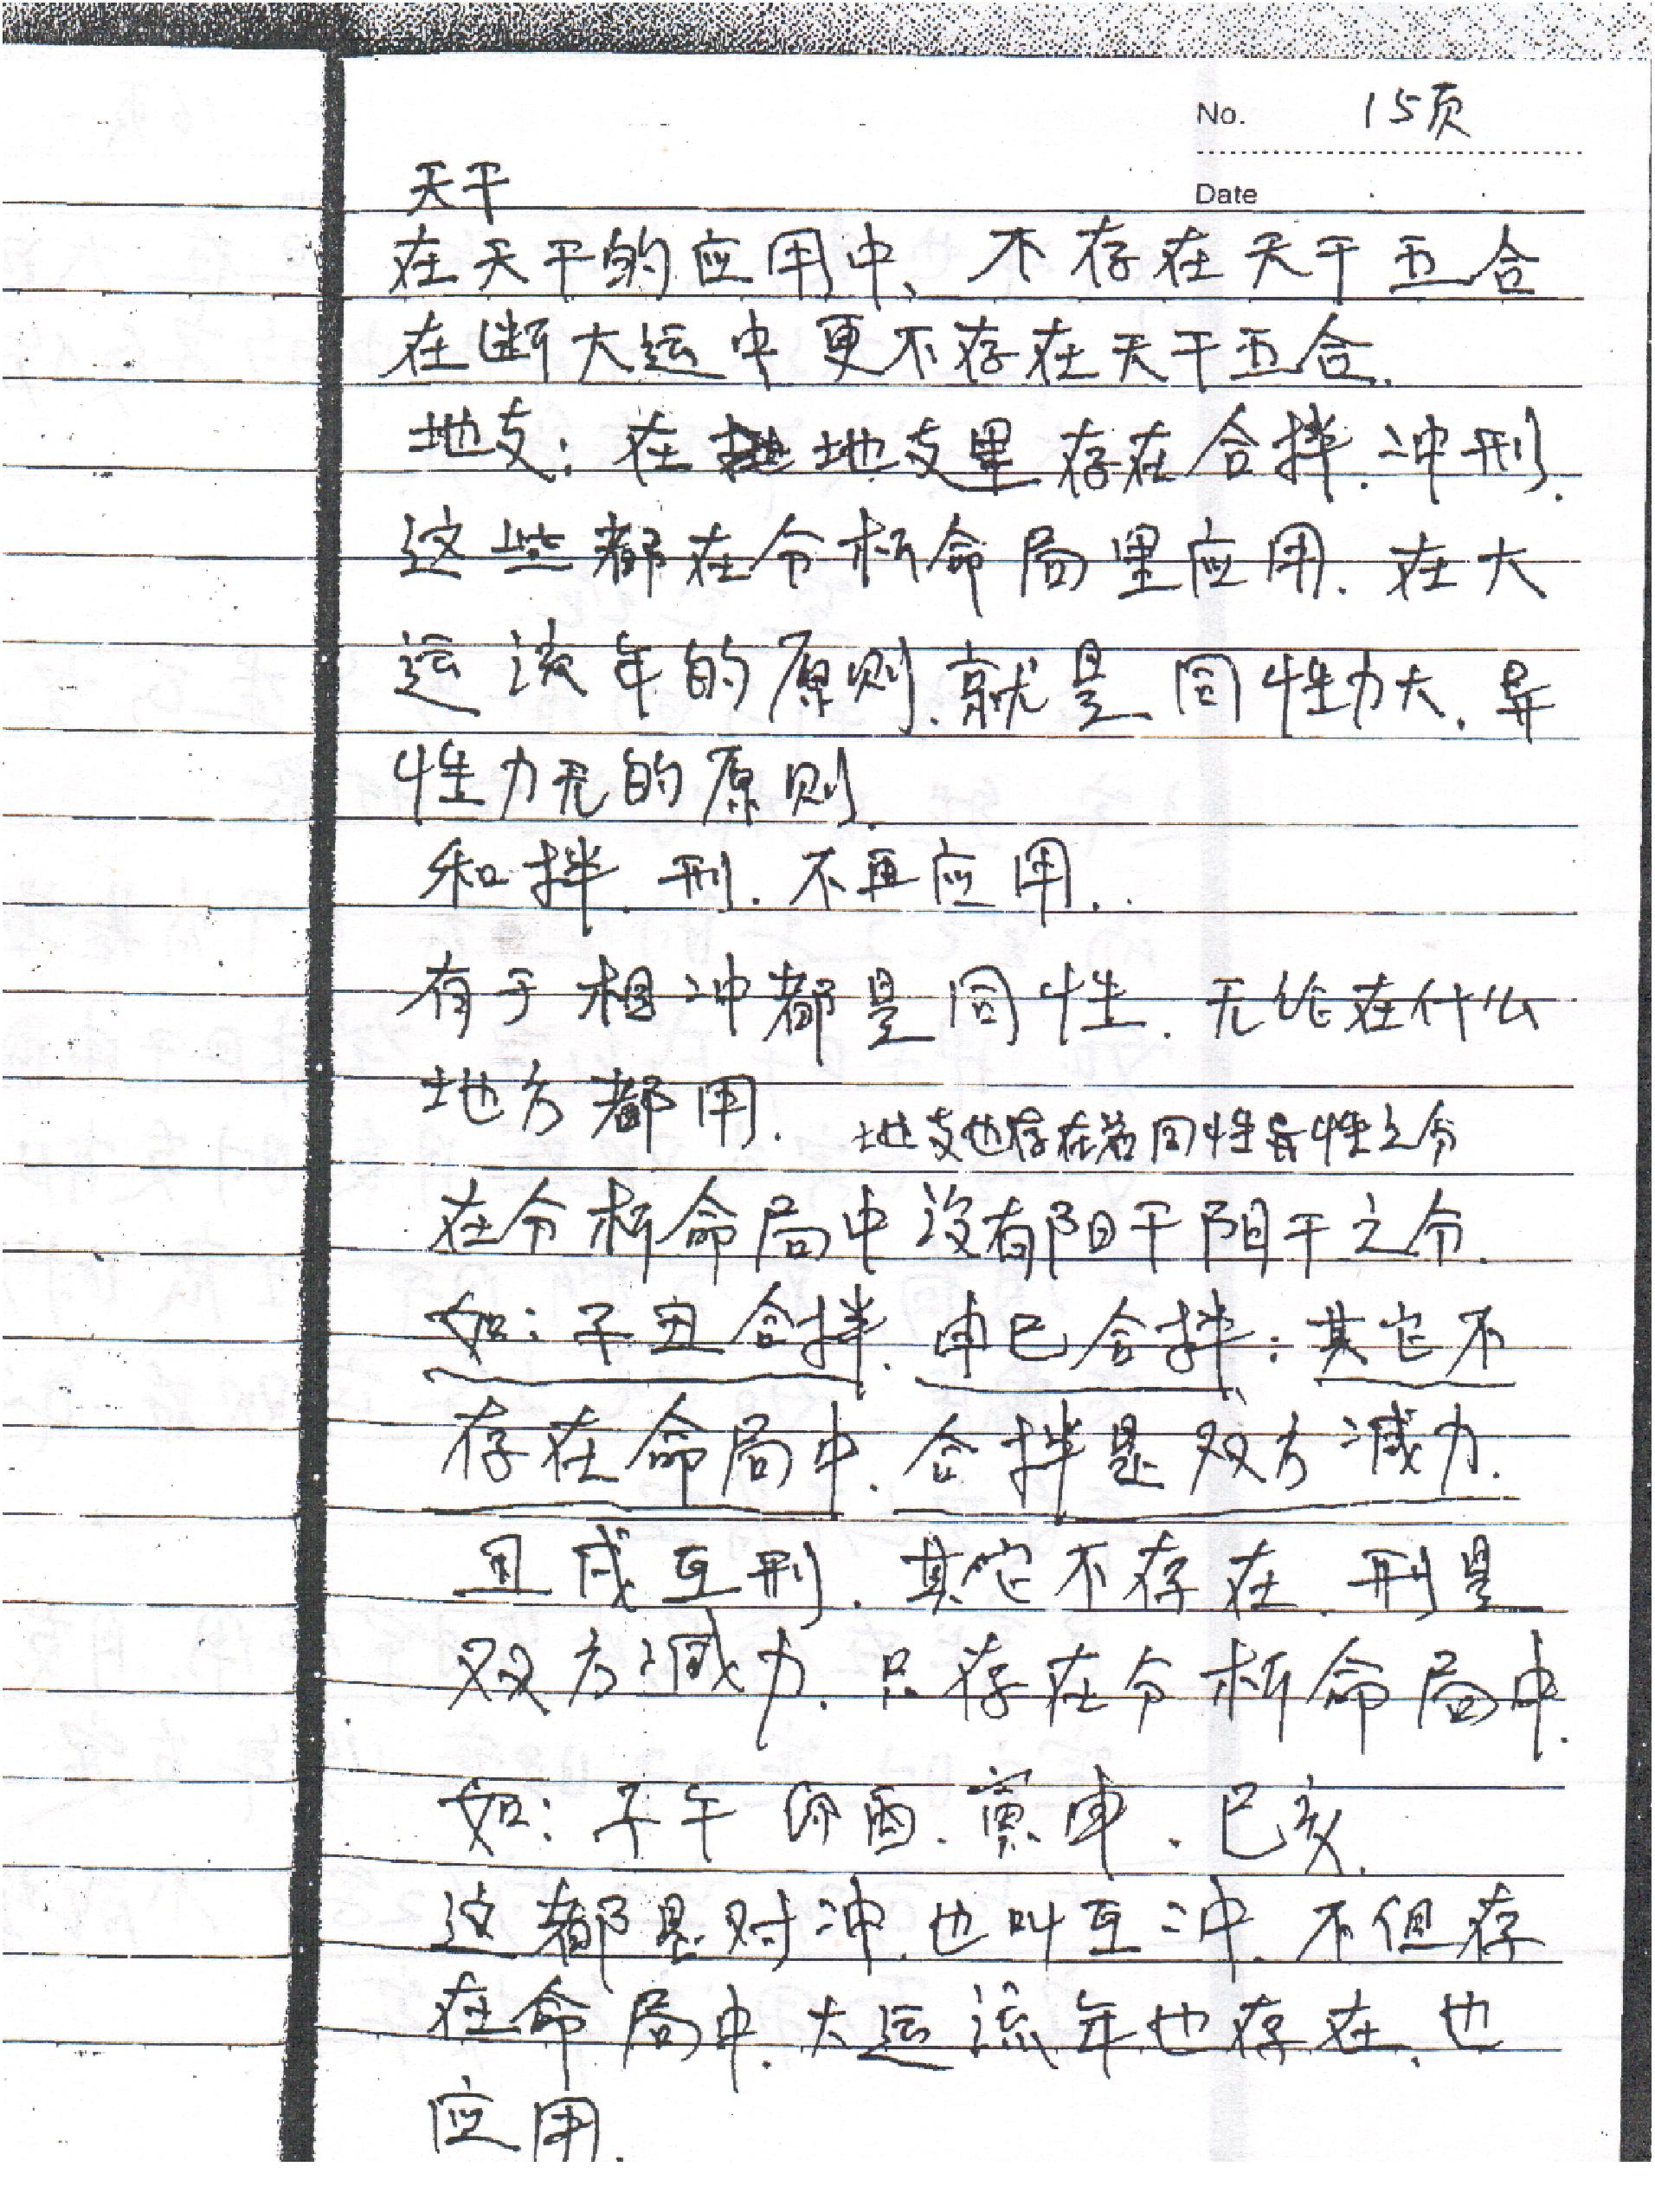 No. 15页
Date
天干
在天干的应用中、不存在天干五合
在断大运中更不存在天干五合.
地支:在地支里存在合拌.冲刑.
这些都在分析命局里应用.在大
运流年的原则.就是同性力大.异
性力无的原则.
和拌.刑.不再应用..
有于相冲都是同性.无论在什么
地方都用.
地支也存在着同性异性之分
在分析命局中没有阳干阴干之分.
如:子丑合拌.申巳合拌:其它不
存在命局中.合拌是双方减力.
丑戌互刑.其它不存在.刑是
双方减力.只存在分析命局中.
如:子午 卯酉.寅申.巳亥.
这都是对冲.也叫互冲.不但存
在命局中.大运流年也存在.也
应用.